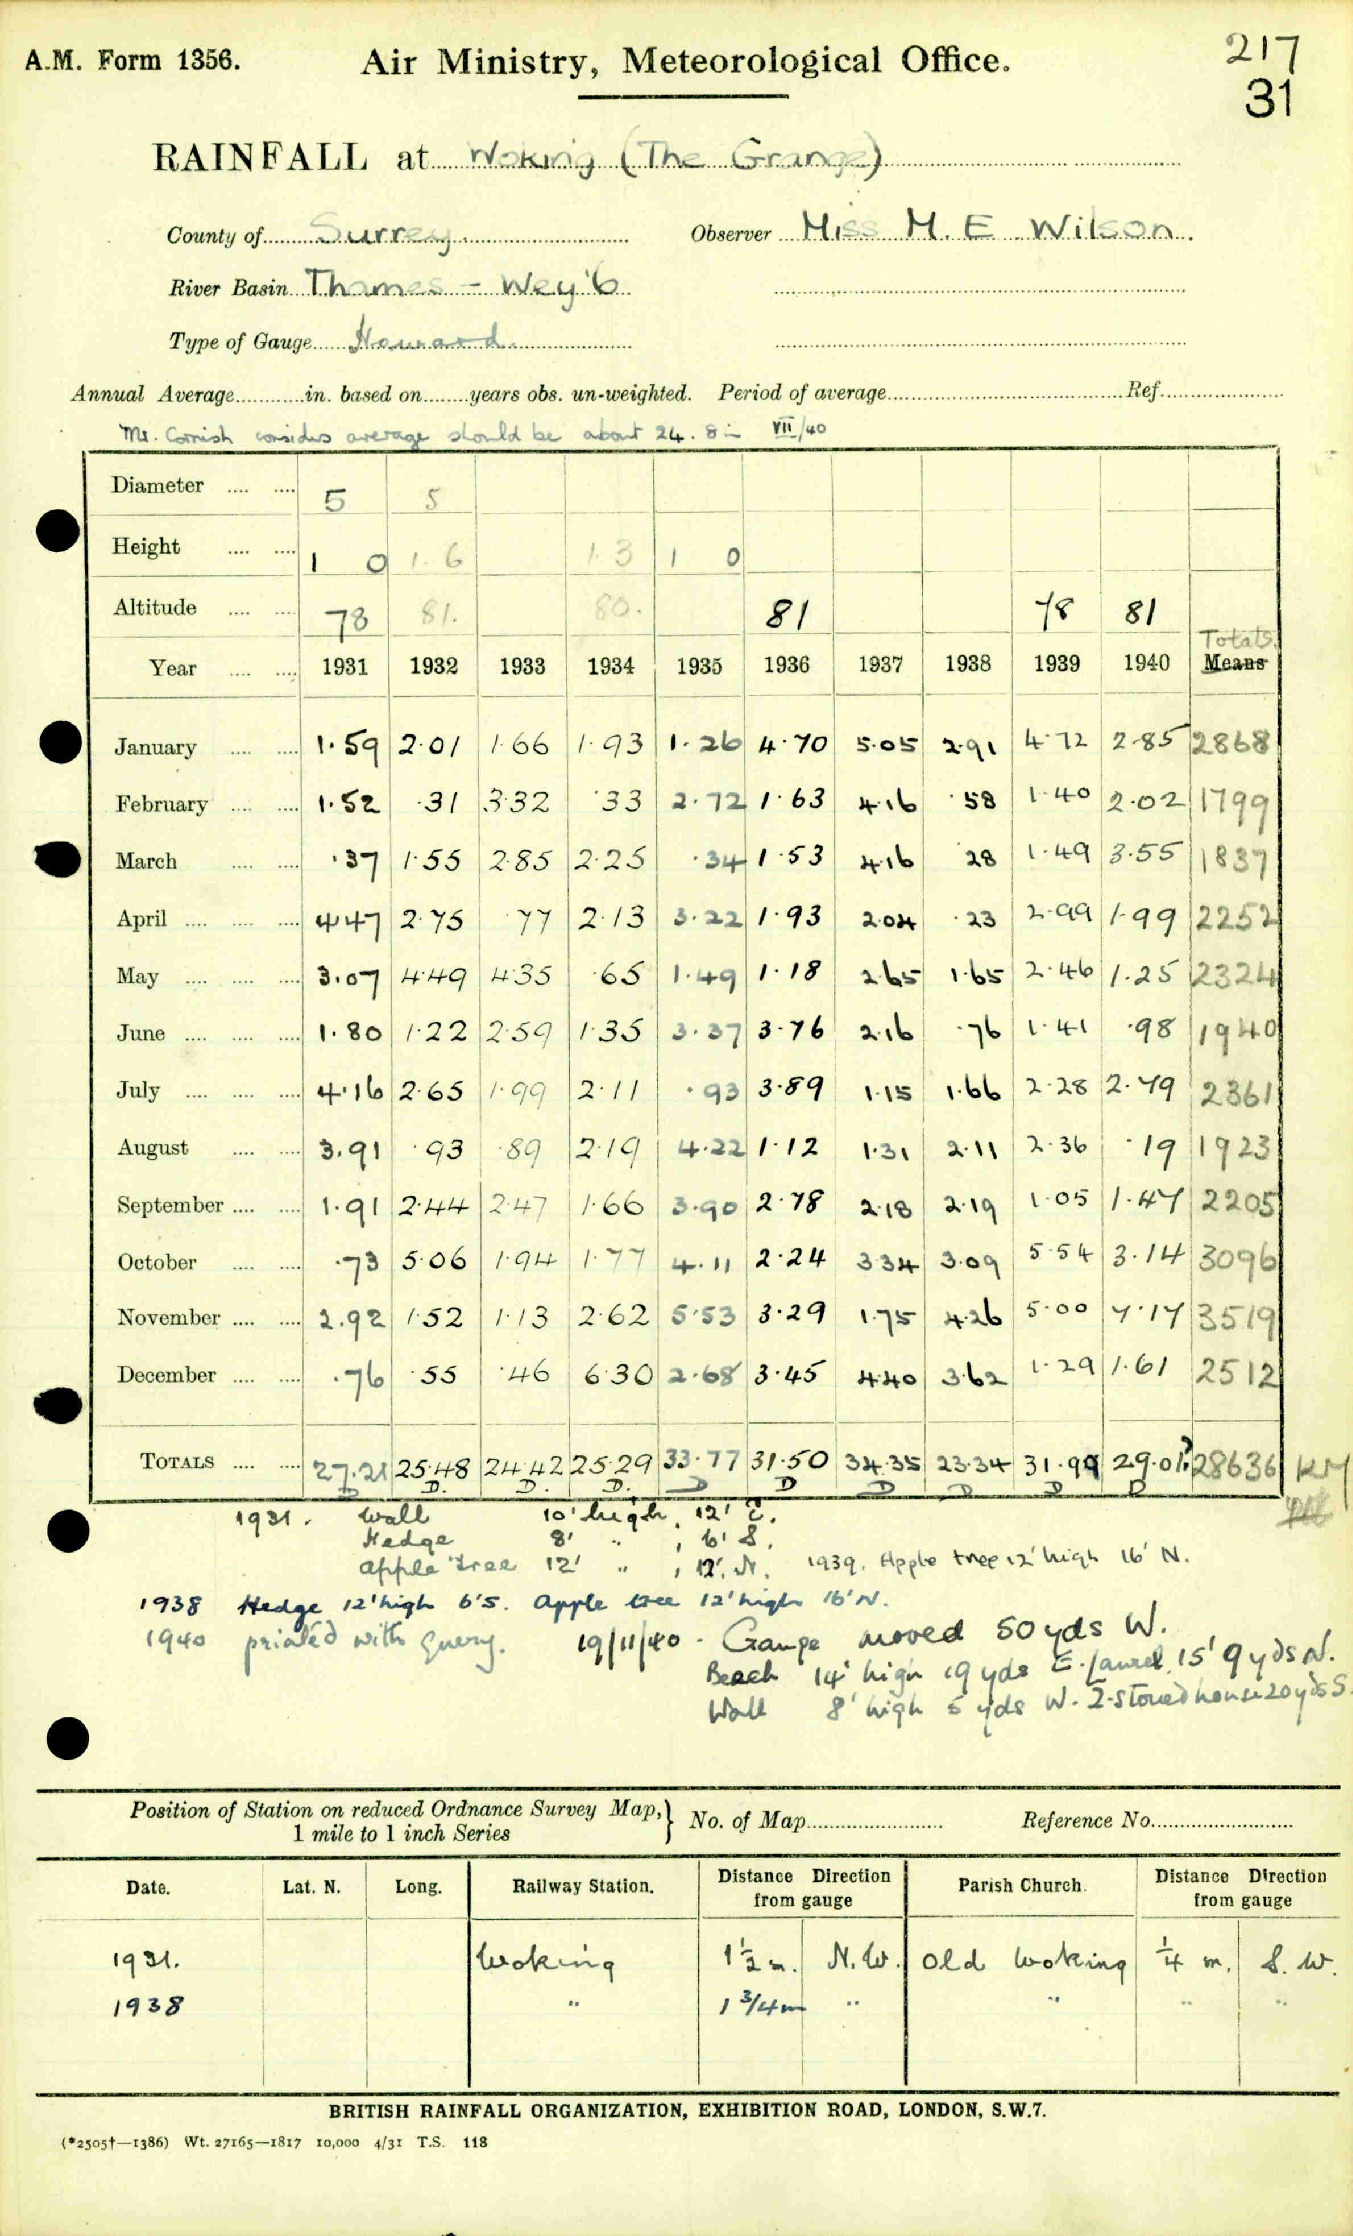 A.M. Form 1356. Air Ministry, Meteorological Office. 217
31
RAINFALL at Woking (The Grange)
County of Surrey. Observer Miss M. E Wilson.
River Basin Thames - Wey '6
Type of Gauge Howard.
Annual Average in. based on years obs. un-weighted. Period of average Ref.
Mr. Cornish considers average should be about 24.8 in VII/40
Diameter 5 5
Height 1 0 1.6 1.3 1 0
Altitude 78 81. 80. 81 78 81
Totals
Year 1931 1932 1933 1934 1935 1936 1937 1938 1939 1940 Means
January 1.59 2.01 1.66 1.93 1.26 4.70 5.05 2.91 4.72 2.85 2868
February 1.52 .31 3.32 .33 2.72 1.63 4.16 .58 1.40 2.02 1799
March .37 1.55 2.85 2.25 .34 1.53 4.16 28 1.49 3.55 1837
April 4.47 2.75 .77 2.13 3.22 1.93 2.04 .23 2.99 1.99 2252
May 3.07 4.49 4.35 .65 1.49 1.18 2.65 1.65 2.46 1.25 2324
June 1.80 1.22 2.59 1.35 3.37 3.76 2.16 .76 1.41 .98 1940
July 4.16 2.65 1.99 2.11 .93 3.89 1.15 1.66 2.28 2.79 2361
August 3.91 .93 .89 2.19 4.22 1.12 1.31 2.11 2.36 .19 1923
September 1.91 2.44 2.47 1.66 3.90 2.78 2.18 2.19 1.05 1.47 2205
October .73 5.06 1.94 1.77 4.11 2.24 3.34 3.09 5.54 3.14 3096
November 2.92 1.52 1.13 2.62 5.53 3.29 1.75 4.26 5.00 7.17 3519
December .76 .55 .46 6.30 2.68 3.45 4.40 3.62 1.29 1.61 2512
TOTALS 27.21 25.48 24.42 25.29 33.77 31.50 34.35 23.34 31.99 29.01? 28636 KM
D D. D. D. D D D D D D
1931. Wall 10' high, 12' E.
Hedge 8' " , 6' S.
apple tree 12' " , 12' N. 1939. Apple tree 12' high 16' N.
1938 Hedge 12' high 6' S. Apple tree 12' high 16' N.
1940 printed with query. 19/11/40 - Gauge moved 50 yds W.
Beech 14' high 19 yds E. Laurel 15' 9 yds N.
Wall 8' high 5 yds W. 2-storied house 20 yds S.
Position of Station on reduced Ordnance Survey Map, 1 mile to 1 inch Series } No. of Map Reference No.
Date. Lat. N. Long. Railway Station. Distance Direction from gauge Parish Church. Distance Direction from gauge
1931. Woking 1 1/2 m. N.W. Old Woking 1/4 m. S.W.
1938 " 1 3/4 m " " " "
BRITISH RAINFALL ORGANIZATION, EXHIBITION ROAD, LONDON, S.W.7.
(*2505†—1386) Wt. 27165—1817 10,000 4/31 T.S. 118